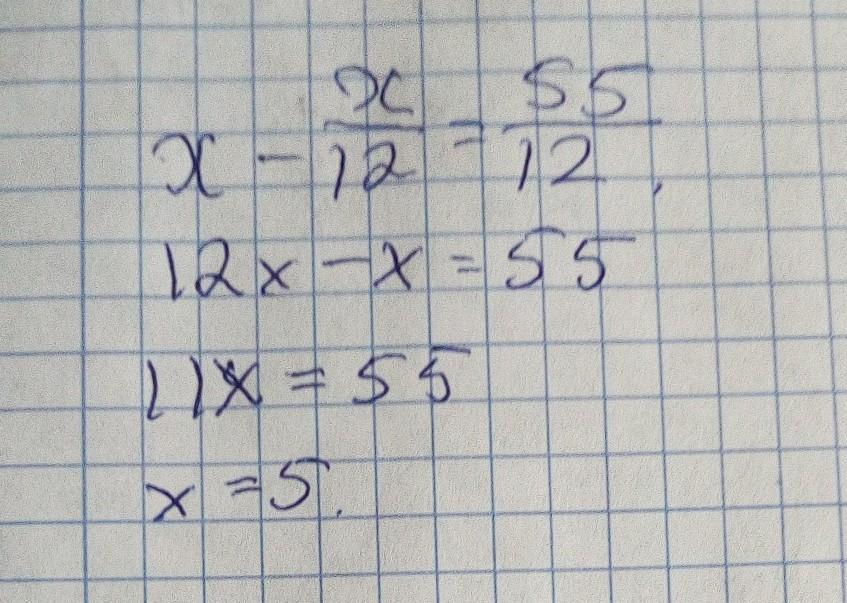 x - x/12 = 55/12.
12x - x = 55
11x = 55
x = 5.